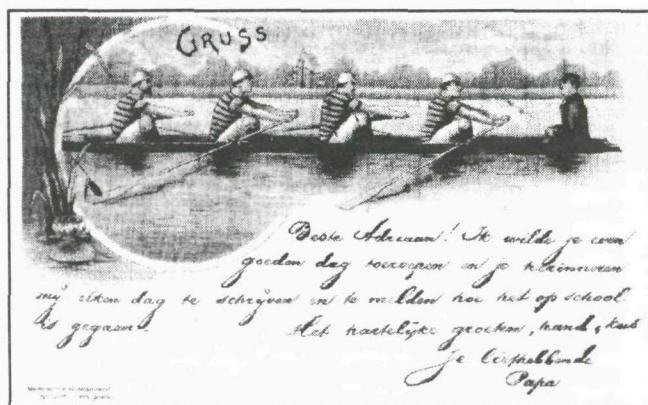 GRUSS
Beste Adriaan! Ik wilde je even
goeden dag toeroepen en je herinneren
mij elken dag te schrijven en te melden hoe het op school
is gegaan. Het hartelijke groeten, hand, kus
Je liefhebbende
Papa